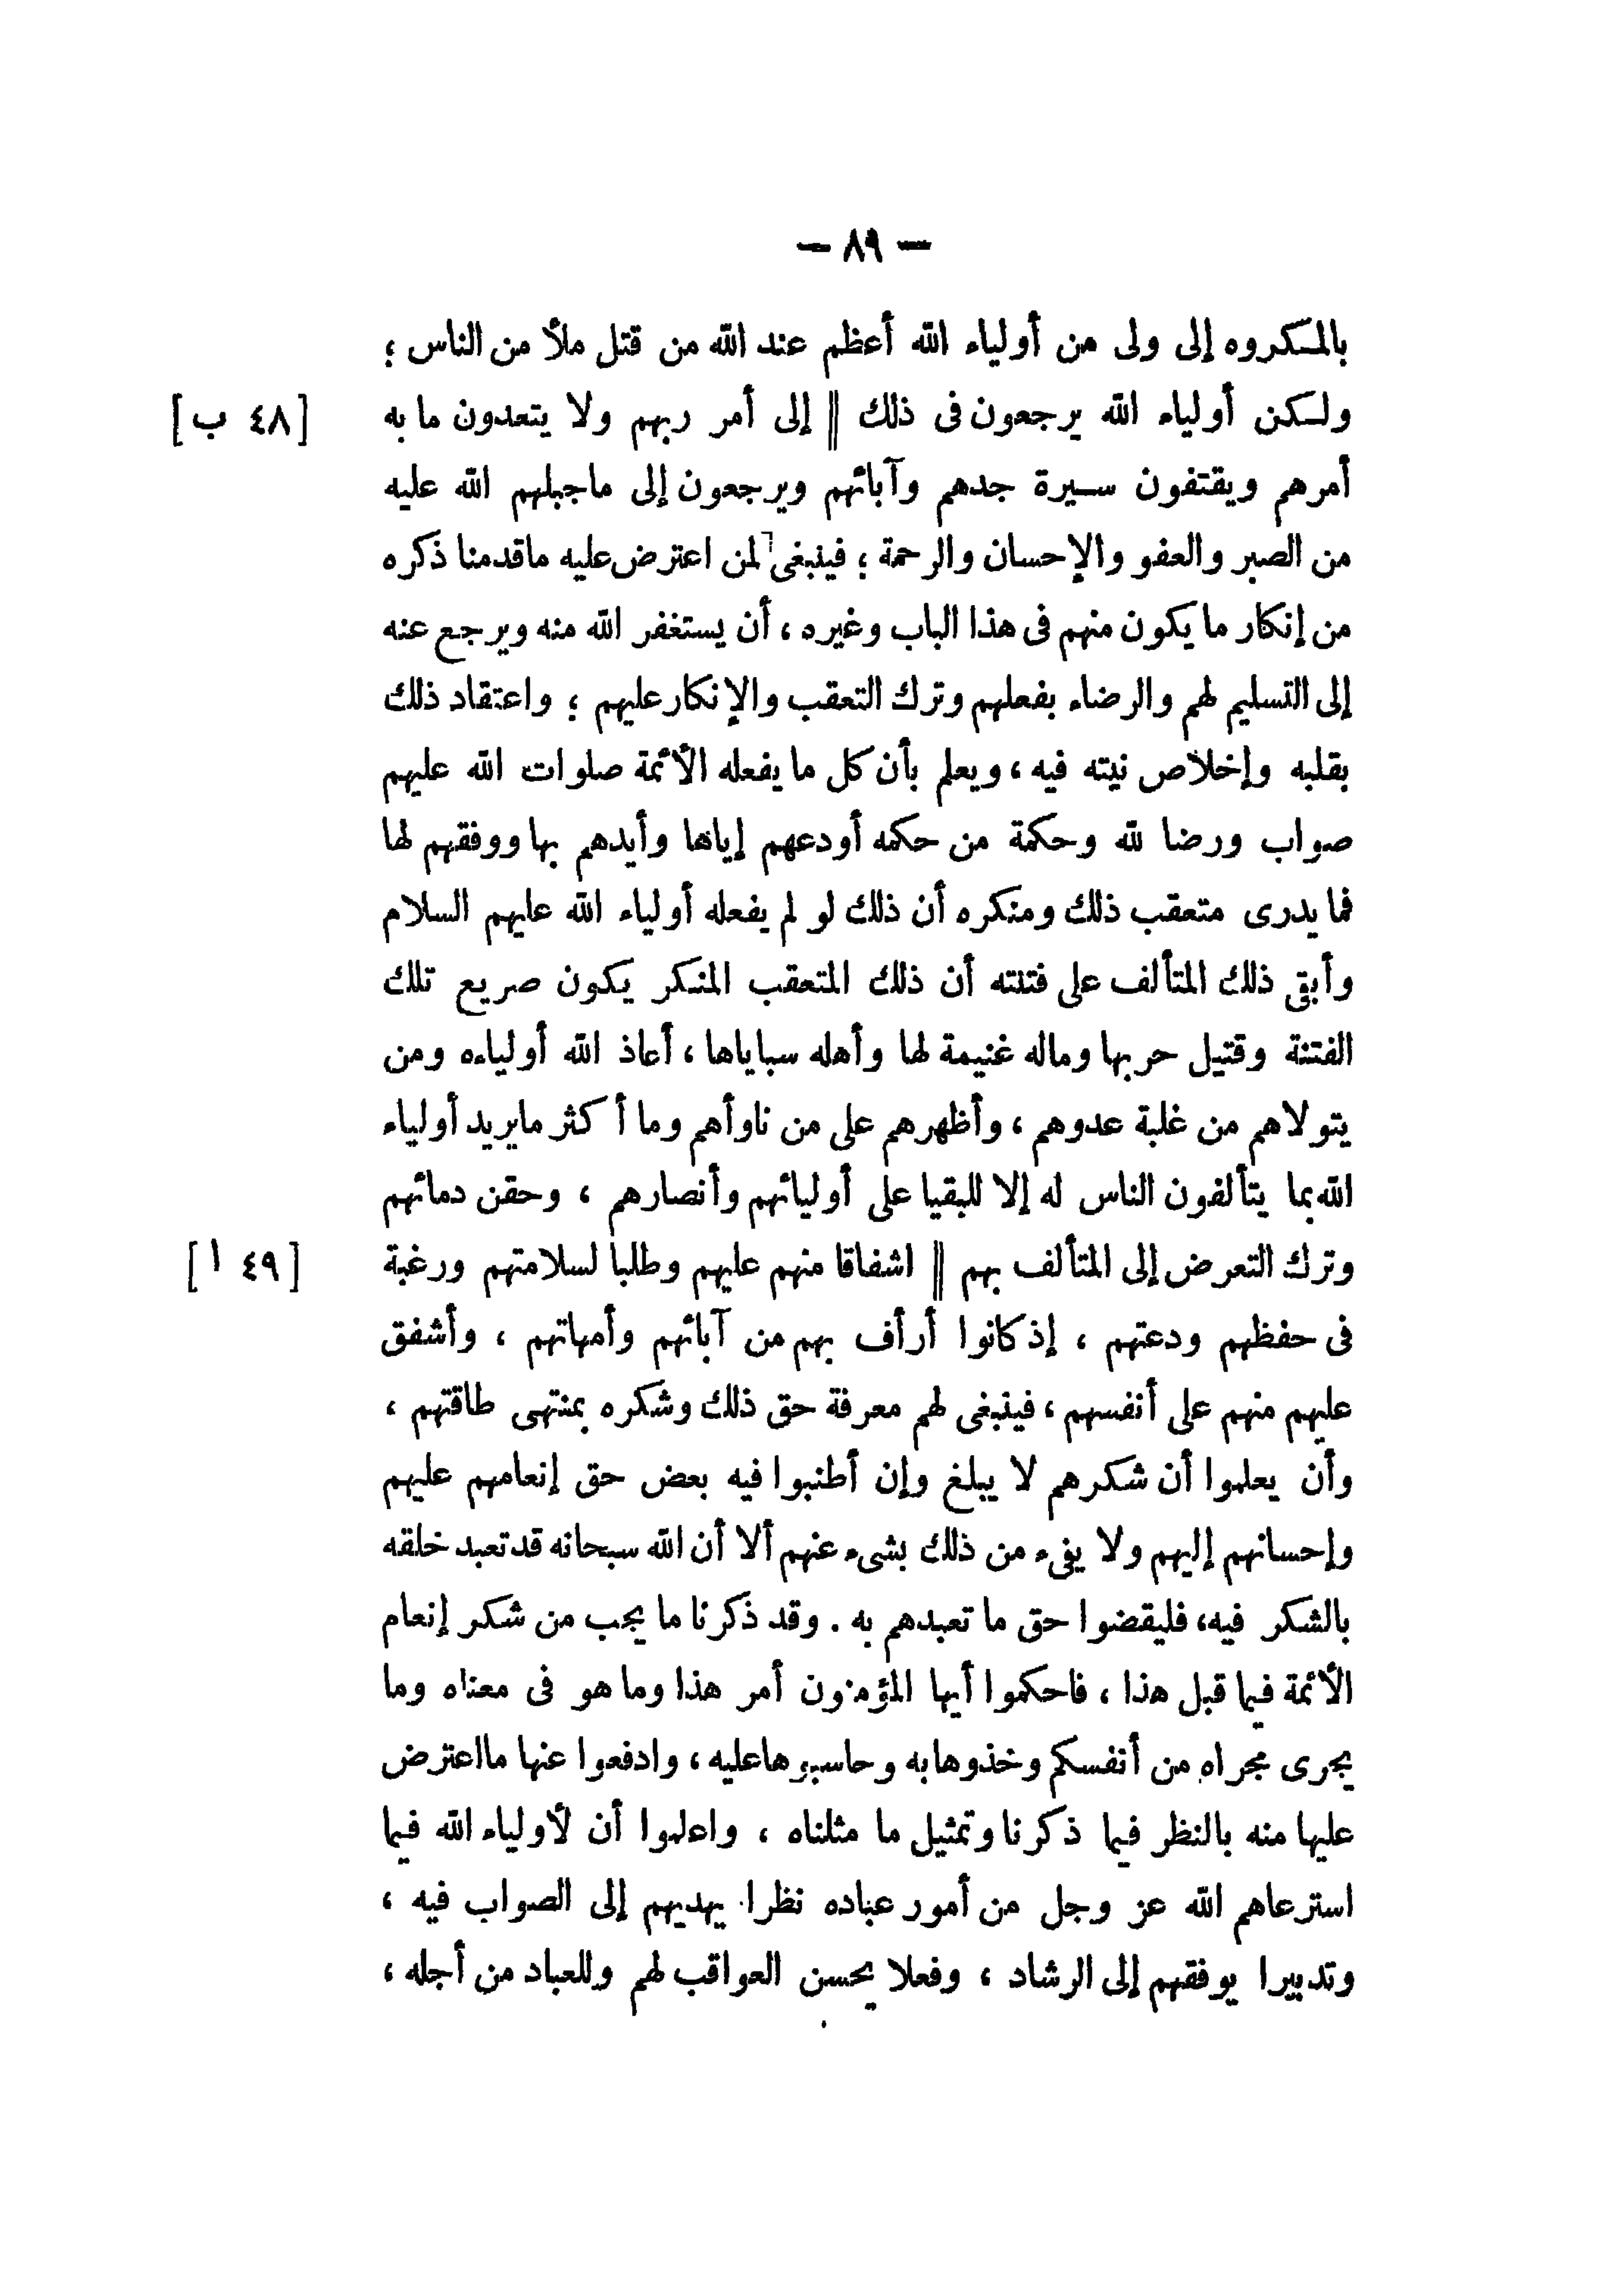 — ٨٩ —
بالمكروه إلى ولى من أولياء الله أعظم عند الله من قتل ملأ من الناس ؛
ولكن أولياء الله يرجعون فى ذلك || إلى أمر ربهم ولا يتعدون ما به [٤٨ ب]
أمرهم ويقتفون سيرة جدهم وآبائهم ويرجعون إلى ماجبلهم الله عليه
من الصبر والعفو والإحسان والرحمة ؛ فينبغى لمن اعترض عليه ماقدمنا ذكره
من إنكار ما يكون منهم فى هذا الباب وغيره ، أن يستغفر الله منه ويرجع عنه
إلى التسليم لهم والرضاء بفعلهم وترك التعقب والإنكار عليهم ؛ واعتقاد ذلك
بقلبه وإخلاص نيته فيه ، ويعلم بأن كل ما يفعله الأئمة صلوات الله عليهم
صواب ورضا لله وحكمة من حكمه أودعهم إياها وأيدهم بها ووفقهم لها
فما يدرى متعقب ذلك ومنكره أن ذلك لو لم يفعله أولياء الله عليهم السلام
وأبقى ذلك المتألف على فتنته أن ذلك المتعقب المنكر يكون صريع تلك
الفتنة وقتيل حربها وماله غنيمة لها وأهله سباياها ، أعاذ الله أولياءه ومن
يتولاهم من غلبة عدوهم ، وأظهرهم على من ناوأهم وما أكثر مايريد أولياء
الله بما يتألفون الناس له إلا للبقيا على أوليائهم وأنصارهم ، وحقن دمائهم
وترك التعرض إلى المتألف بهم || اشفاقا منهم عليهم وطلبا لسلامتهم ورغبة [٤٩ ا]
فى حفظهم ودعتهم ، إذ كانوا أرأف بهم من آبائهم وأمهاتهم ، وأشفق
عليهم منهم على أنفسهم ، فينبغى لهم معرفة حق ذلك وشكره بمنتهى طاقتهم ،
وأن يعلموا أن شكرهم لا يبلغ وإن أطنبوا فيه بعض حق إنعامهم عليهم
وإحسانهم إليهم ولا يفىء من ذلك بشىء عنهم ألا أن الله سبحانه قد تعبد خلقه
بالشكر فيه، فليقضوا حق ما تعبدهم به . وقد ذكرنا ما يجب من شكر إنعام
الأئمة فيما قبل هذا ، فاحكموا أيها المؤمنون أمر هذا وما هو فى معناه وما
يجرى مجراه من أنفسكم وخذوها به وحاسبوها عليه ، وادفعوا عنها مااعترض
عليها منه بالنظر فيما ذكرنا وتمثيل ما مثلناه ، واعلموا أن لأولياء الله فيما
استرعاهم الله عز وجل من أمور عباده نظرا يهديهم إلى الصواب فيه ،
وتدبيرا يوفقهم إلى الرشاد ، وفعلا يحسن العواقب لهم وللعباد من أجله ،